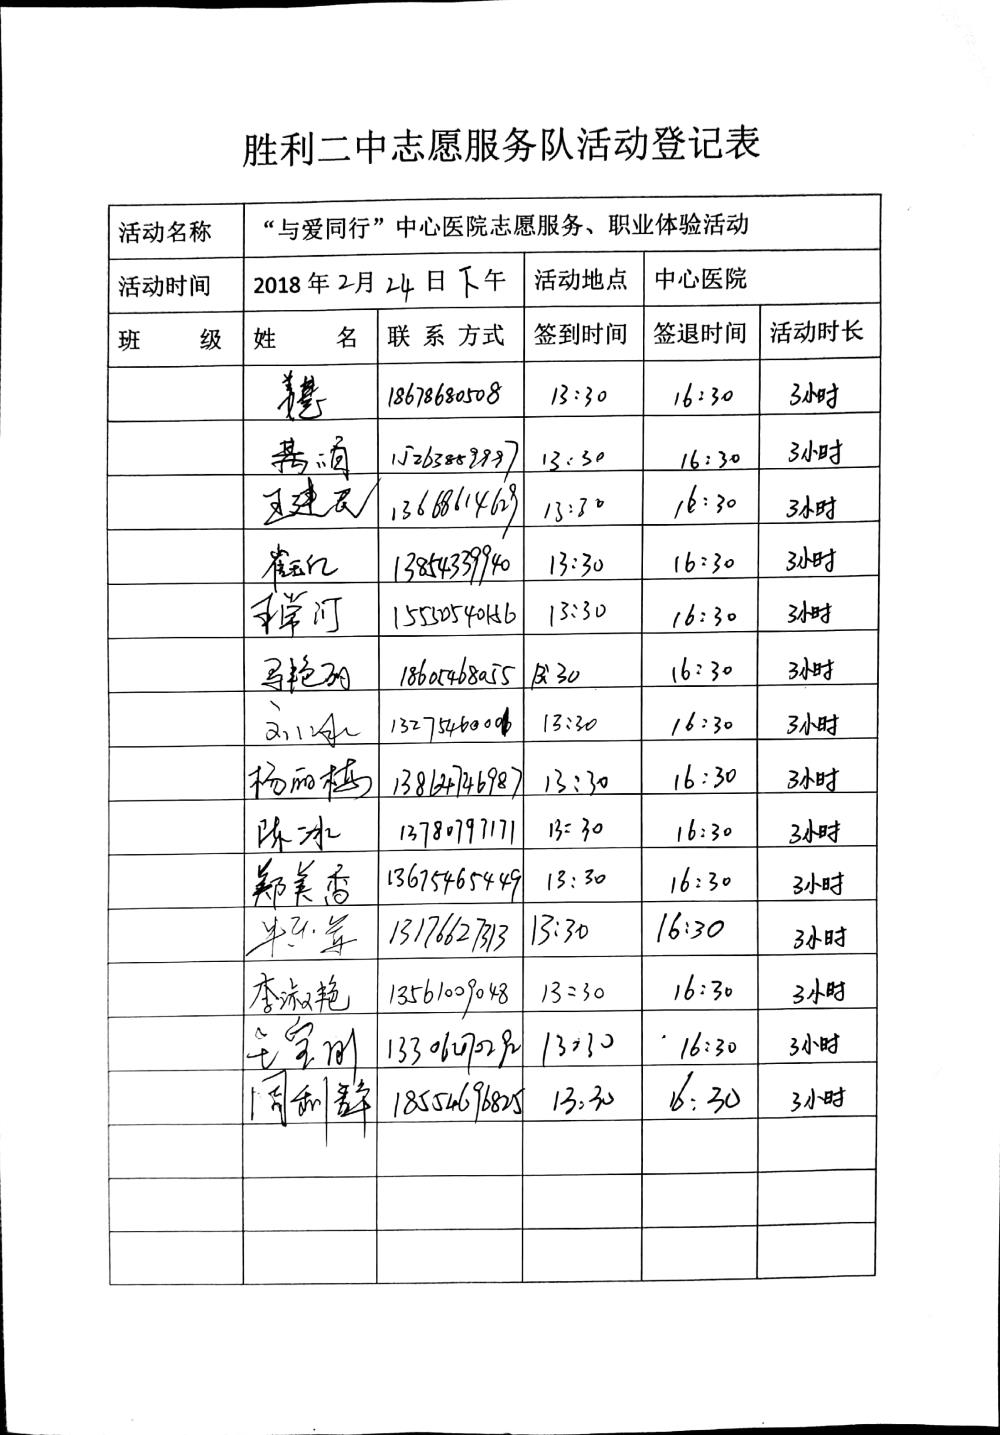 胜利二中志愿服务队活动登记表
活动名称 “与爱同行”中心医院志愿服务、职业体验活动
活动时间 2018年2月24日下午 活动地点 中心医院
班 级 姓 名 联系方式 签到时间 签退时间 活动时长
18678680508 13:30 16:30 3小时
13:30 16:30 3小时
王建民 13668614629 13:30 16:30 3小时
崔玉仁 13854339940 13:30 16:30 3小时
王常河 13:30 16:30 3小时
马艳丽 18605468055 13:30 16:30 3小时
13275460006 13:30 16:30 3小时
杨丽梅 13864746987 13:30 16:30 3小时
陈冰 13780797171 13:30 16:30 3小时
郑美香 13675465449 13:30 16:30 3小时
13176627313 13:30 16:30 3小时
李淑艳 13561009048 13:30 16:30 3小时
13:30 16:30 3小时
周利群 18554696825 13:30 16:30 3小时